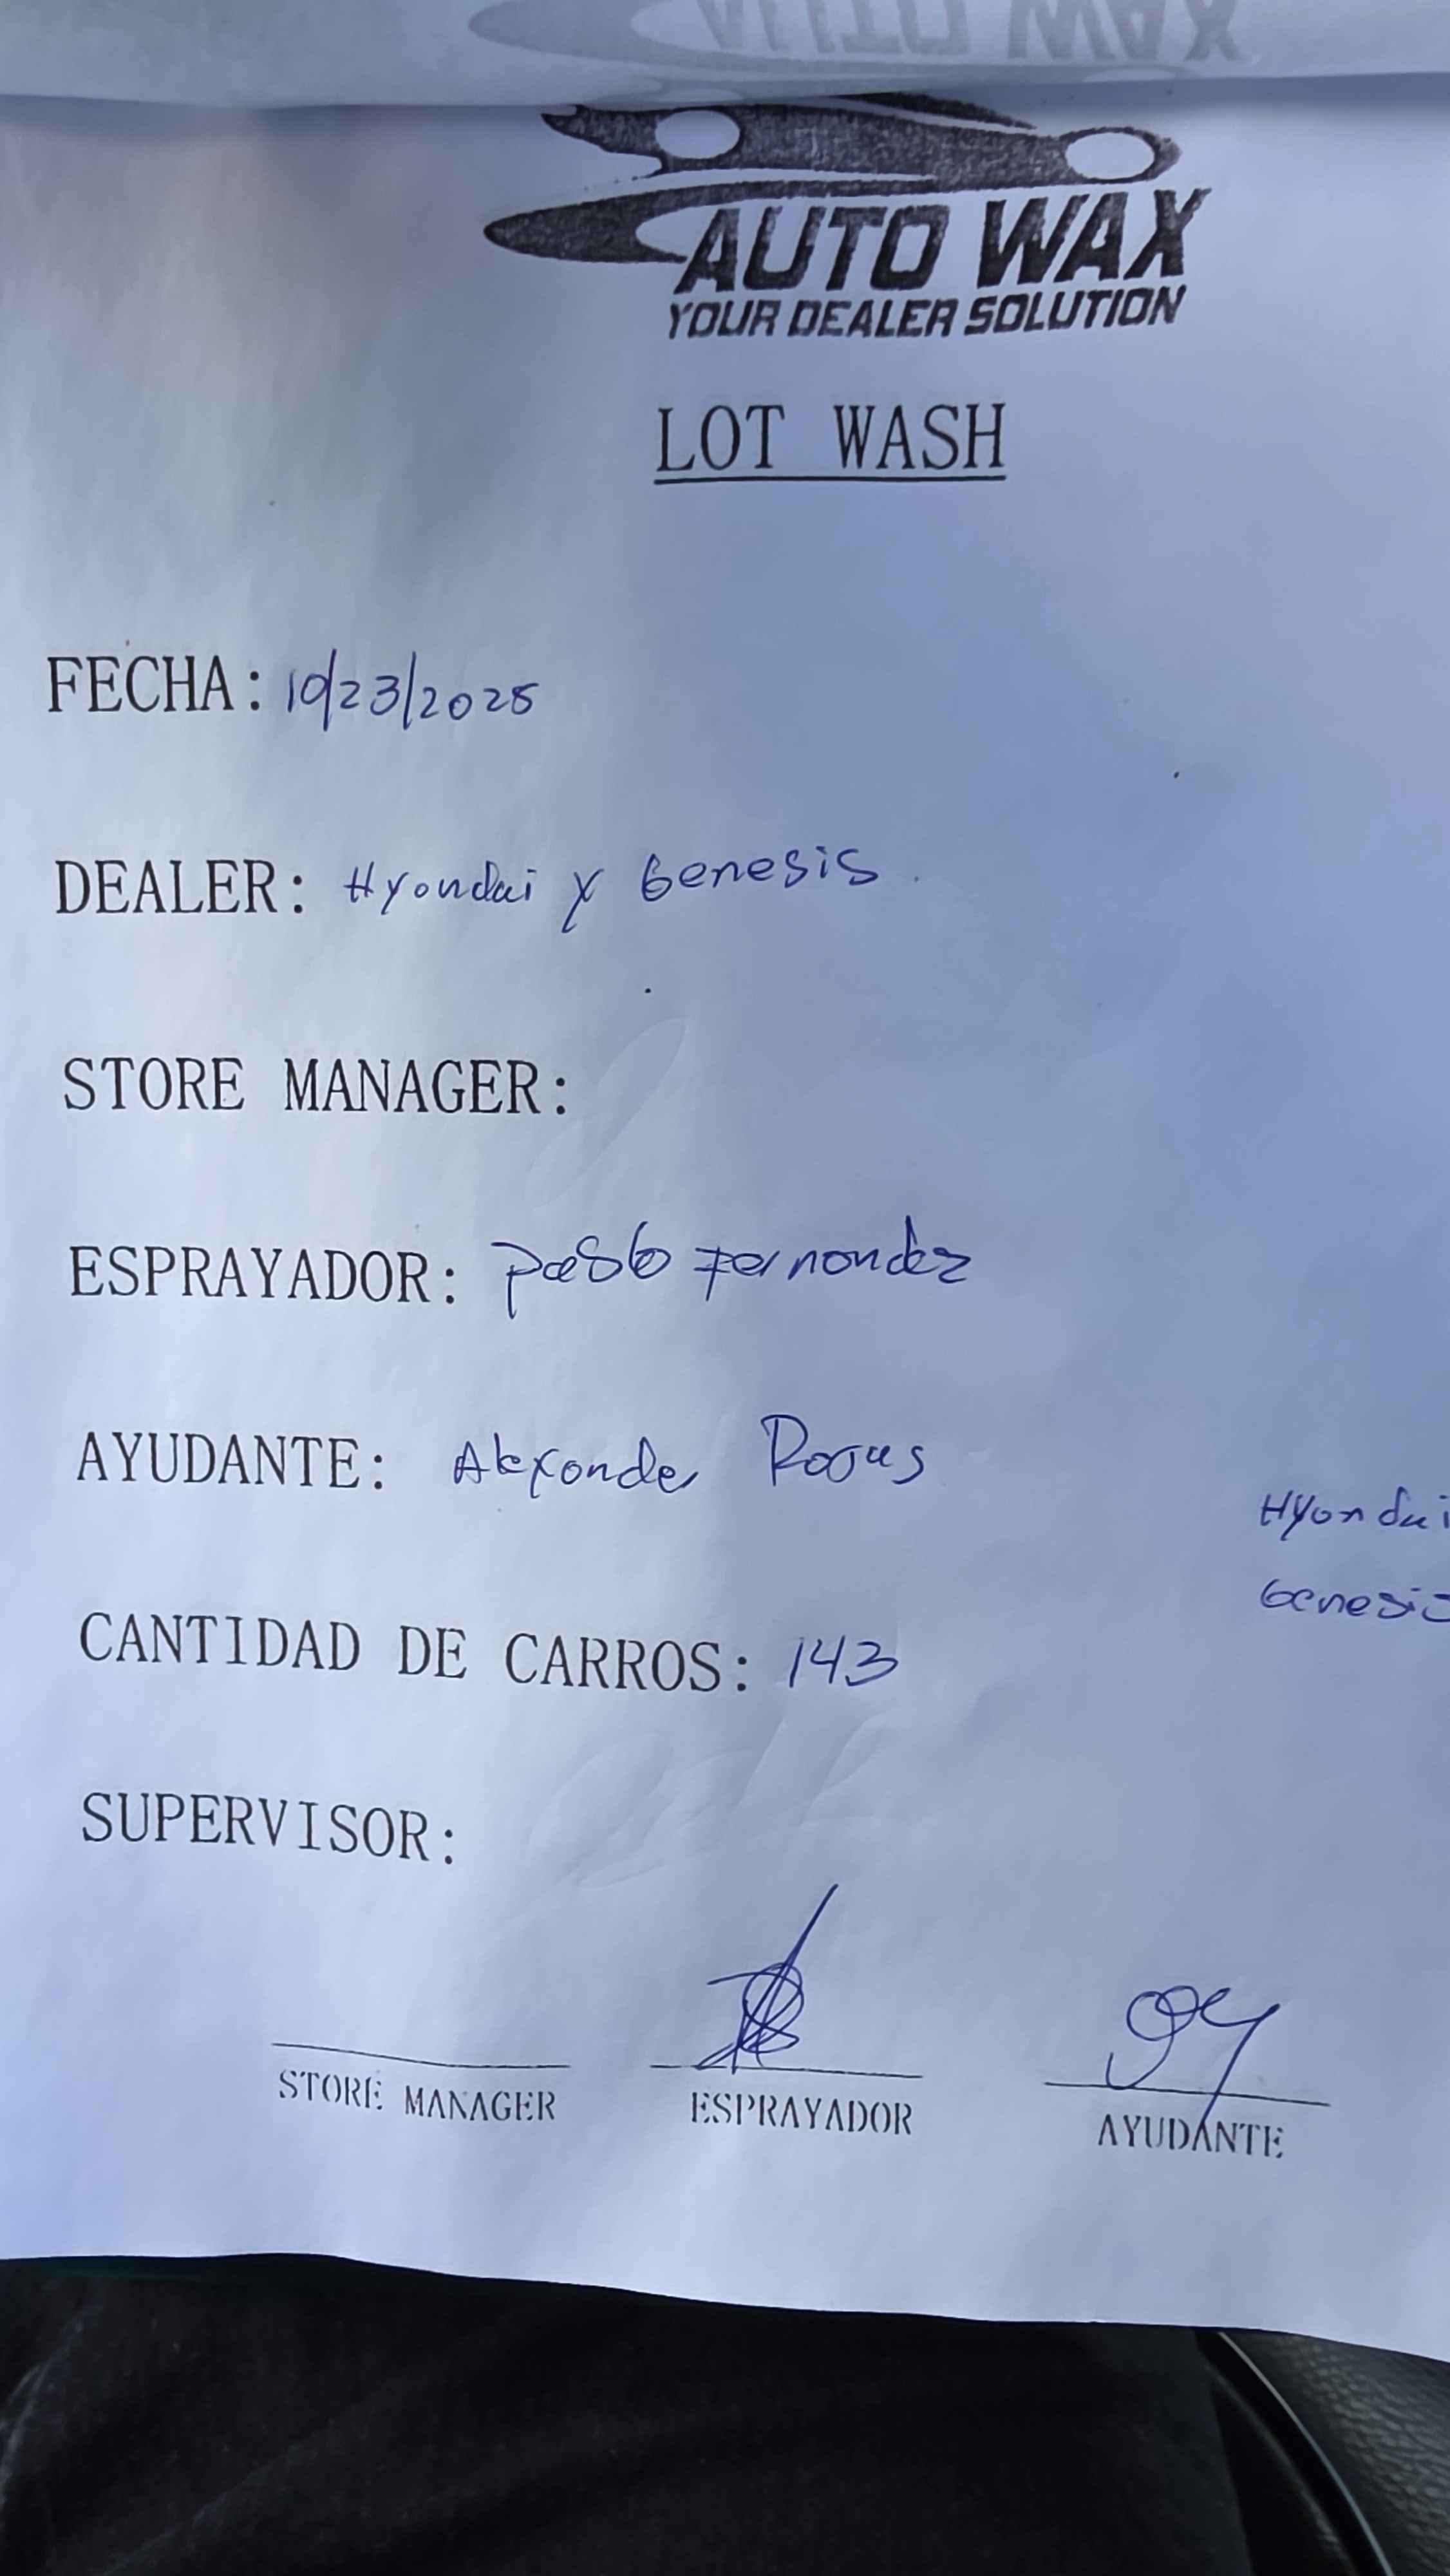 AUTO WAX
AUTO WAX
YOUR DEALER SOLUTION
LOT WASH
FECHA: 10/23/2025
DEALER: Hyondai y Genesis.
STORE MANAGER:
ESPRAYADOR: Pablo Fernondez
AYUDANTE: Alexonder Rojas
Hyondai
Genesis
CANTIDAD DE CARROS: 143
SUPERVISOR:
STORE MANAGER
ESPRAYADOR
AYUDANTE